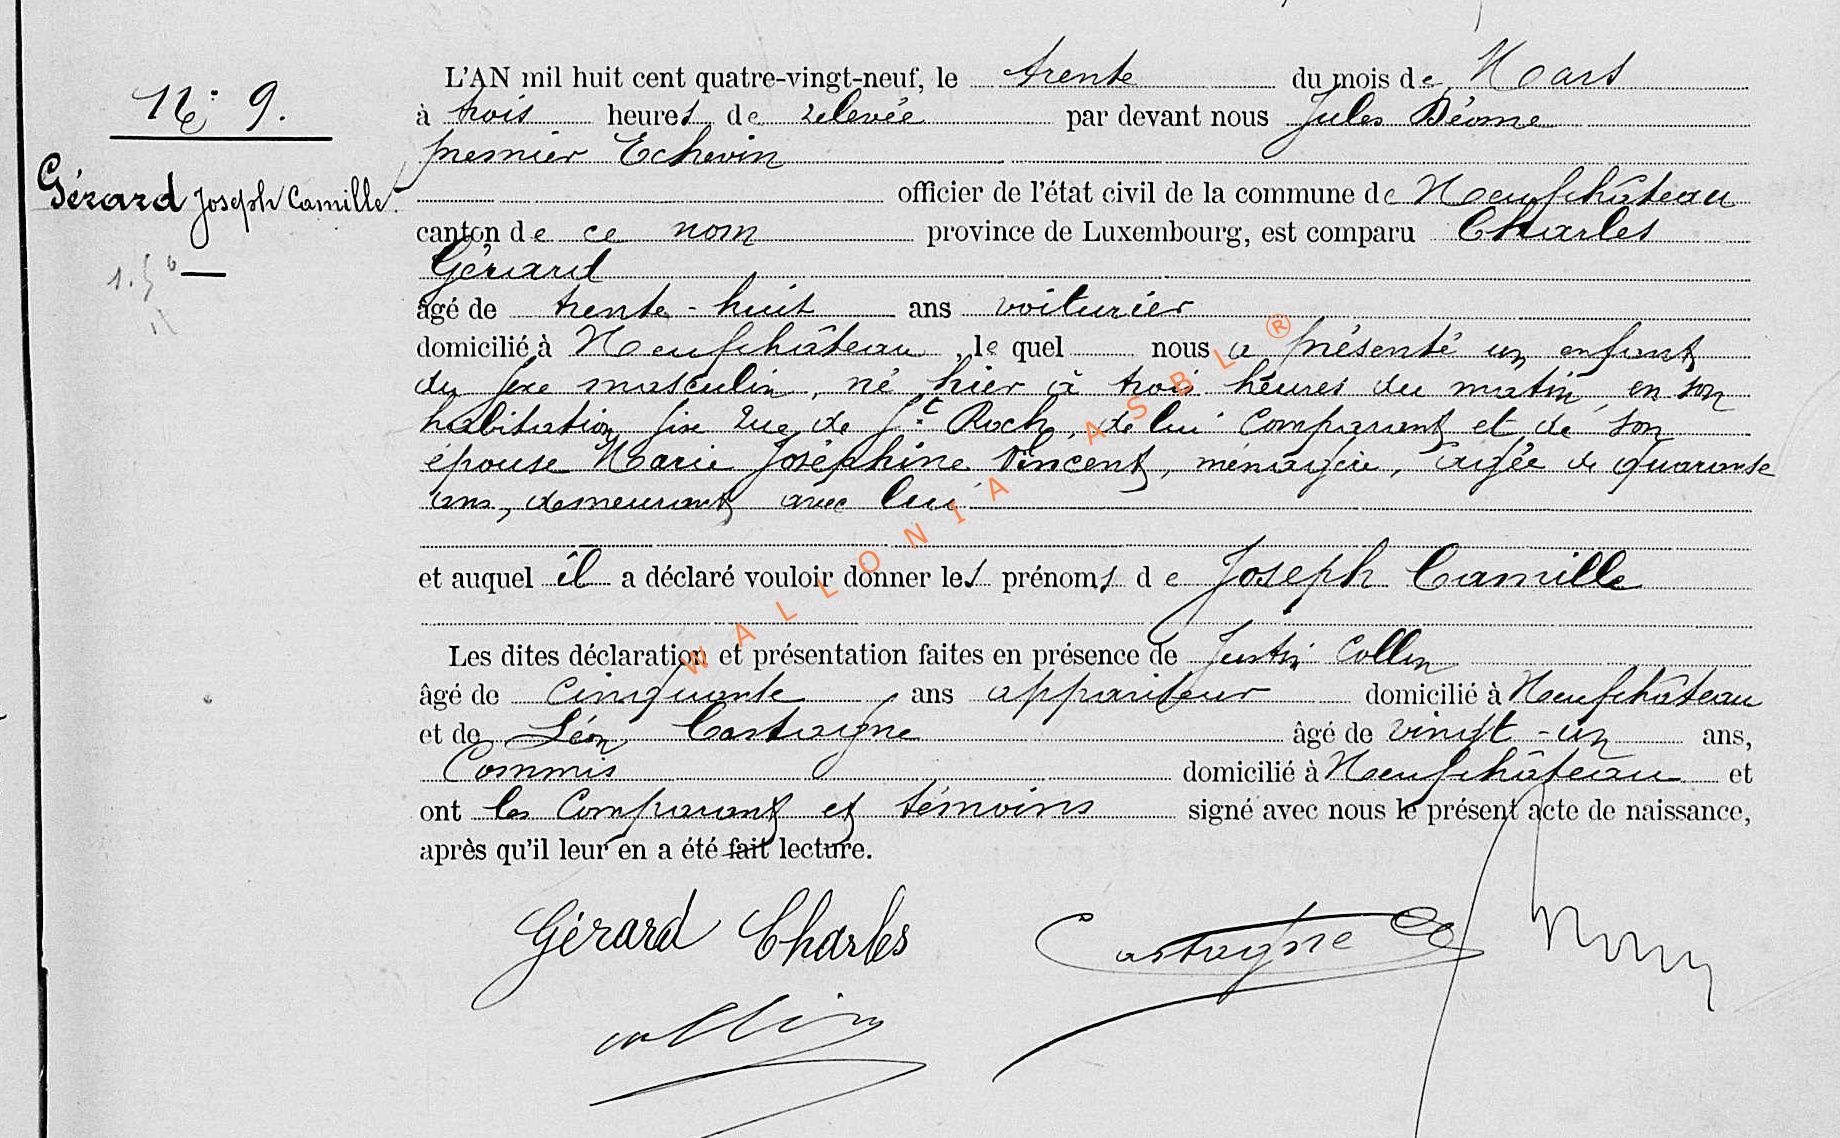 N° 9.
Gérard Joseph Camille.
L'AN mil huit cent quatre-vingt-neuf, le trente du mois de Mars
à trois heures de relevée par devant nous Jules
premier Echevin
officier de l'état civil de la commune de Neufchâteau
canton de ce nom province de Luxembourg, est comparu Charles
Gérard
âgé de trente-huit ans voiturier
domicilié à Neufchâteau, le quel nous a présenté un enfant
du sexe masculin, né hier à trois heures du matin, en son
habitation, sise rue de St Roch, de lui comparant et de son
épouse Marie Joséphine Vincent, ménagère, âgée de quarante
ans, demeurant avec lui
et auquel il a déclaré vouloir donner les prénoms de Joseph Camille
Les dites déclaration et présentation faites en présence de Justin Collin
âgé de cinquante ans appariteur domicilié à Neufchâteau
et de Léon Castaigne âgé de vingt-un ans,
Commis domicilié à Neufchâteau et
ont les comparant et témoins signé avec nous le présent acte de naissance,
après qu'il leur en a été fait lecture.
Gérard Charles
Castaigne
Collin
WALLONIA ASBL ®